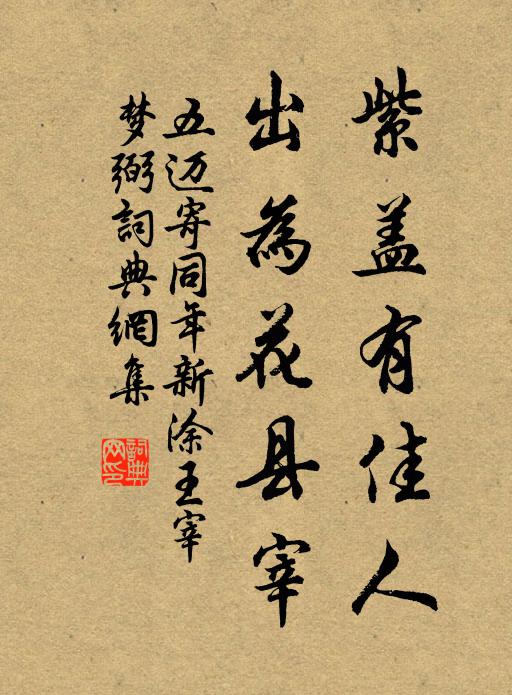 紫盖有佳人
出為花县宰
五迈寄同年新涂王宰
梦弼詞典網集
詞典網印